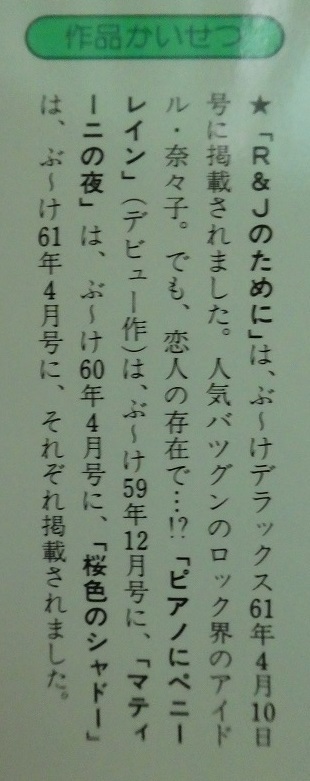 作品かいせつ
★「R&Jのために」は、ぶ〜けデラックス61年4月10日
号に掲載されました。人気バツグンのロック界のアイド
ル・奈々子。でも、恋人の存在で…!?「ピアノにペニー
レイン」(デビュー作)は、ぶ〜け59年12月号に、「マティ
ーニの夜」は、ぶ〜け60年4月号に、「桜色のシャドー」
は、ぶ〜け61年4月号に、それぞれ掲載されました。